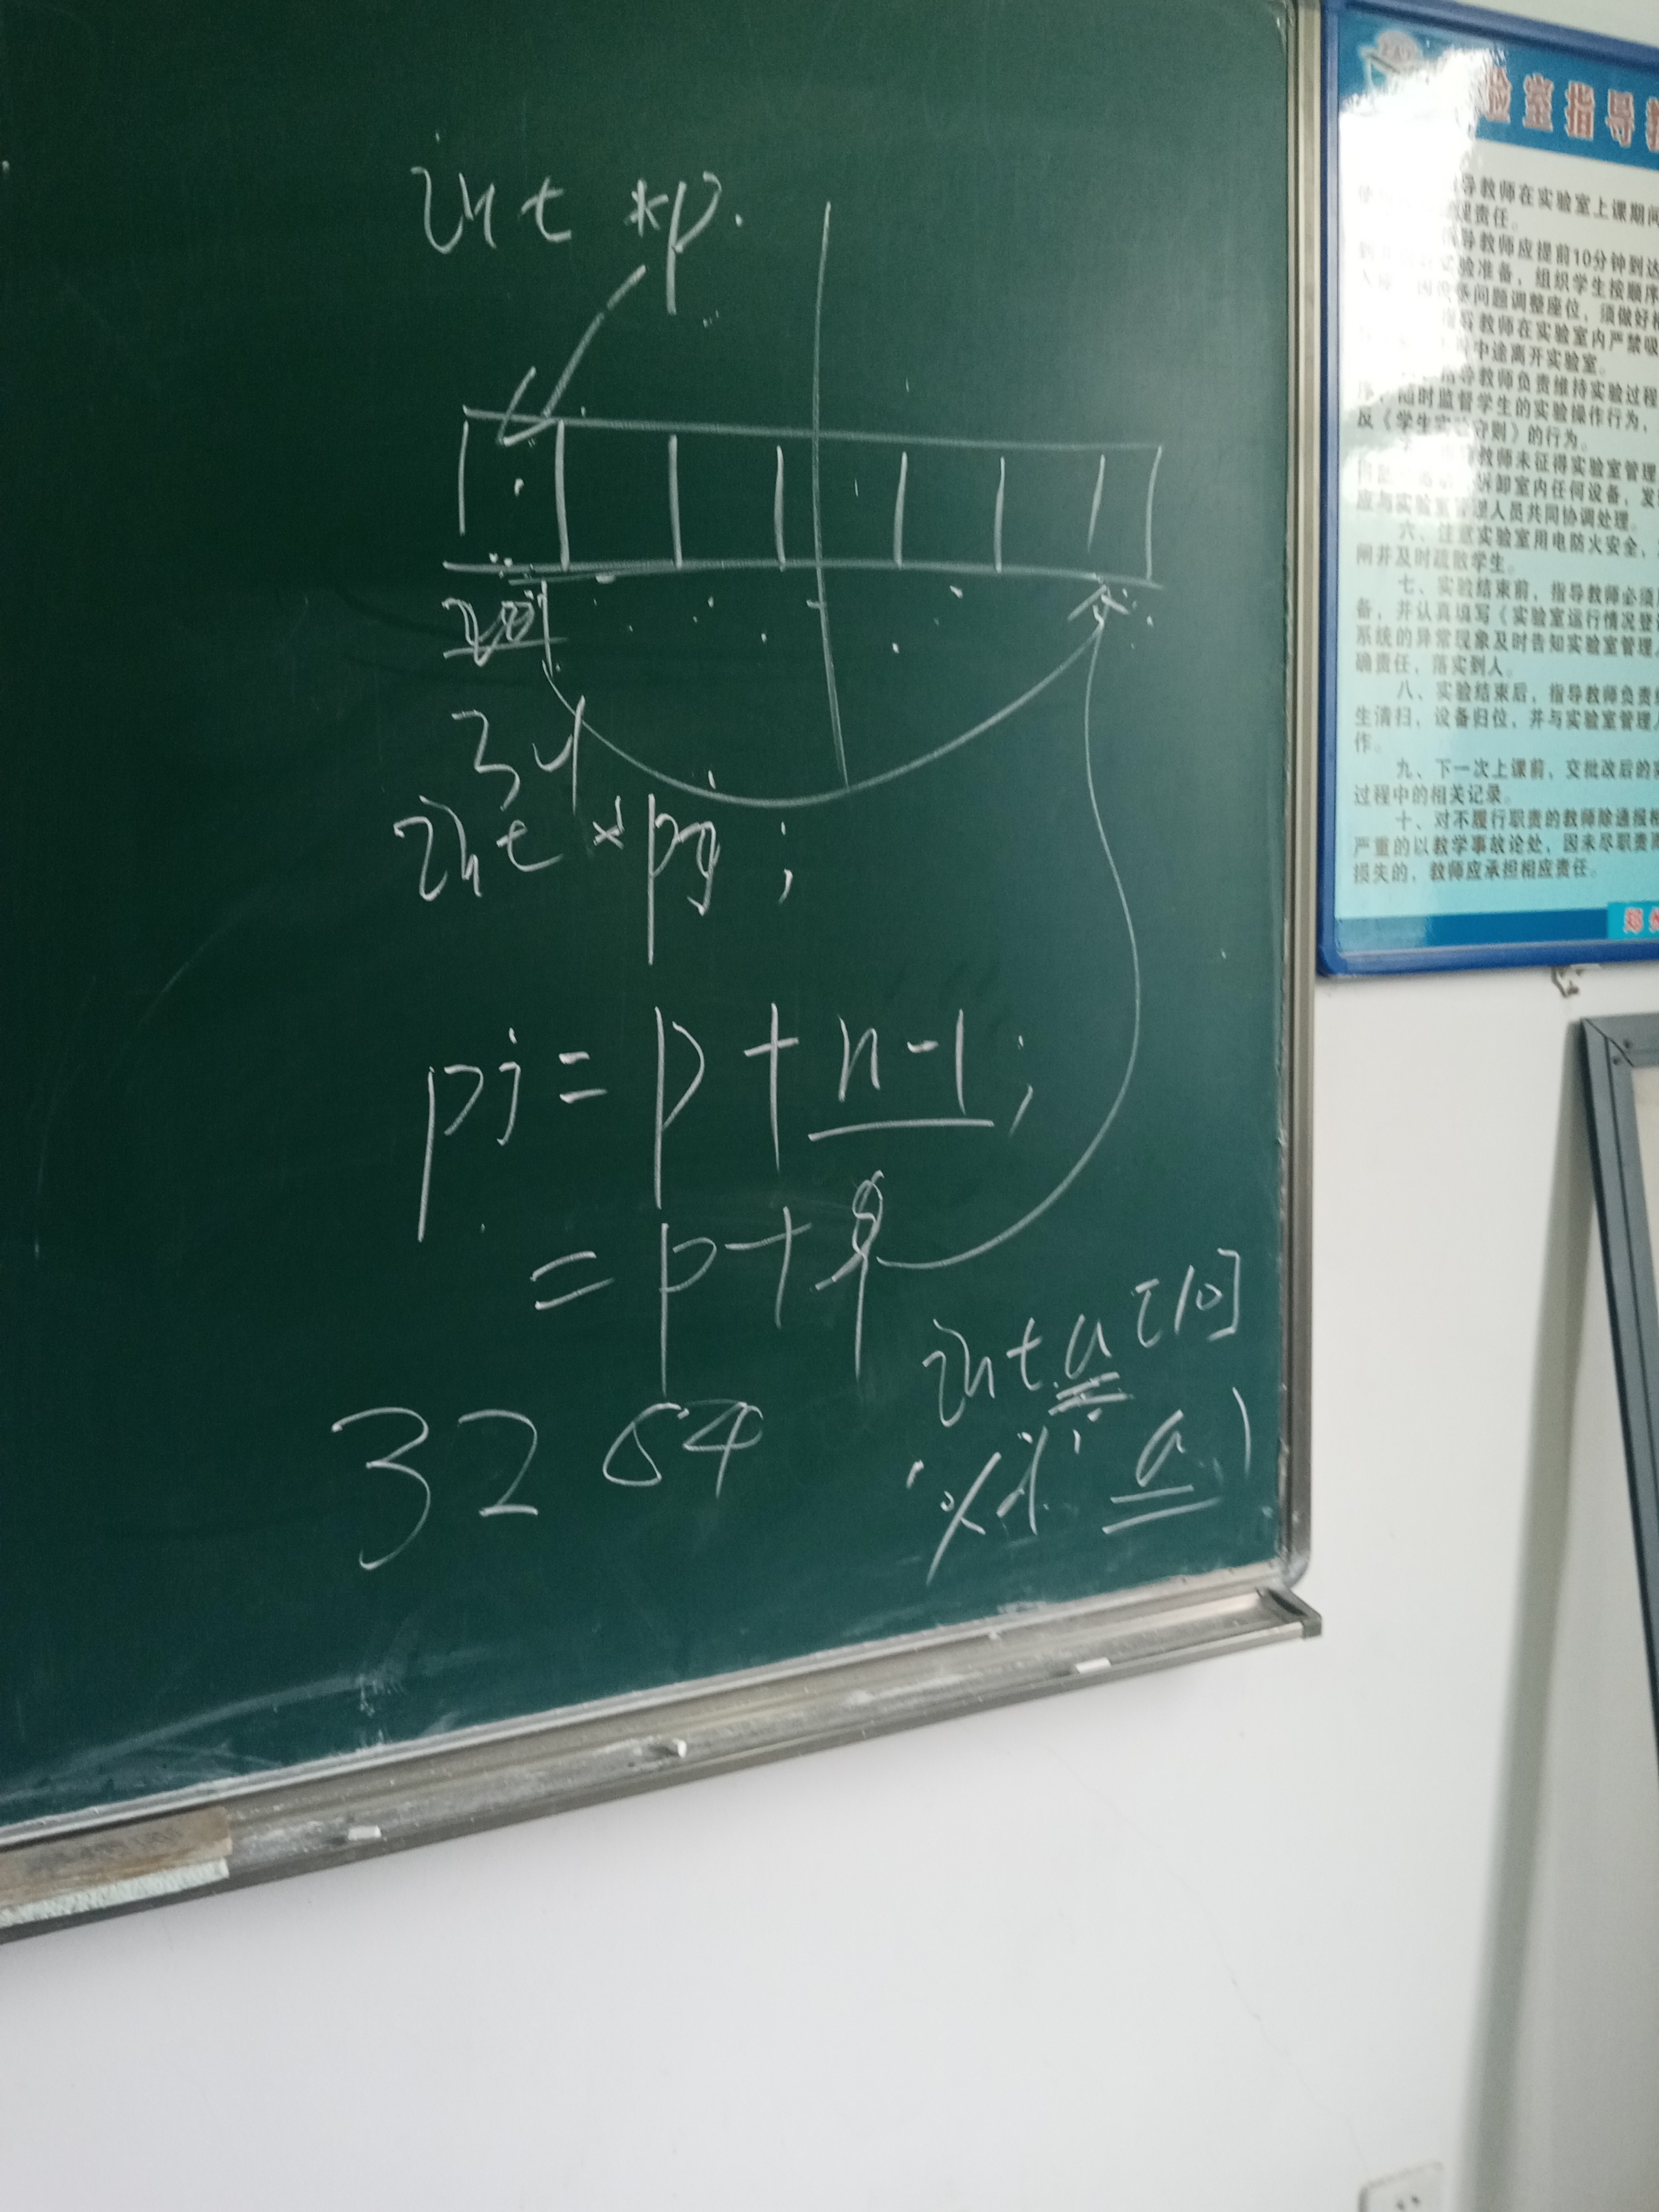 int *p.
34
int *pj;
pj = p + n-1;
= p + 9
32 64
int a[10]
"%d" a)
验室指导
导教师在实验室上课期间
理责任。
导教师应提前10分钟到达
验准备,组织学生按顺序
问题调整座位,须做好
教师在实验室内严禁吸
中途离开实验室。
指导教师负责维持实验过程
序,随时监督学生的实验操作行为,
反《学生实验守则》的行为。
教师未征得实验室管理
拆卸室内任何设备,发
应与实验室管理人员共同协调处理。
六、注意实验室用电防火安全,
闸并及时疏散学生。
七、实验结束前,指导教师必须
备,并认真填写《实验室运行情况登
系统的异常现象及时告知实验室管理
确责任,落实到人。
八、实验结束后,指导教师负责
生清扫,设备归位,并与实验室管理
作。
九、下一次上课前,交批改后的实
过程中的相关记录。
十、对不履行职责的教师除通报
严重的以教学事故论处,因未尽职责
损失的,教师应承担相应责任。
郑州